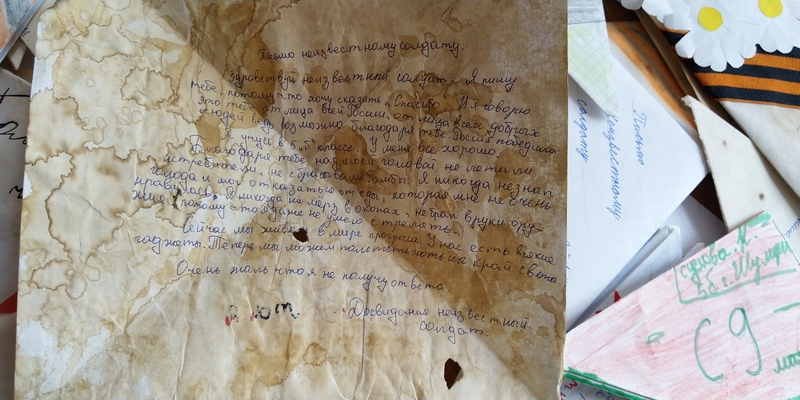 Письмо неизвестному солдату.
Здравствуй неизвестный солдат. Я пишу
тебе, потому что хочу сказать „Спасибо". И я говорю
это тебе от лица всей России, от лица всех добрых
людей ведь возможно благодаря тебе Россия победила.
Я учусь в 5 „Б" классе. У меня все хорошо.
Благодаря тебе над моей головай не летали
истребители, не сбрасывали бомбы. Я никогда не знал
голода и мог отказаться от еды, которая мне не очень
нравилась. Я никогда ни мёрз в окопах, не брал в руки ору-
жия, потому что я даже не умею стрелять.
Сейчас мы живём в мире прогреса. У нас есть всякие
гаджеты. Теперь мы можем полететь хоть на край света
Очень жаль что я не получу ответа.
Досвидания неизвестный
солдат.
Письмо
неизвестному
солдату
5б г. Шумерля
С 9